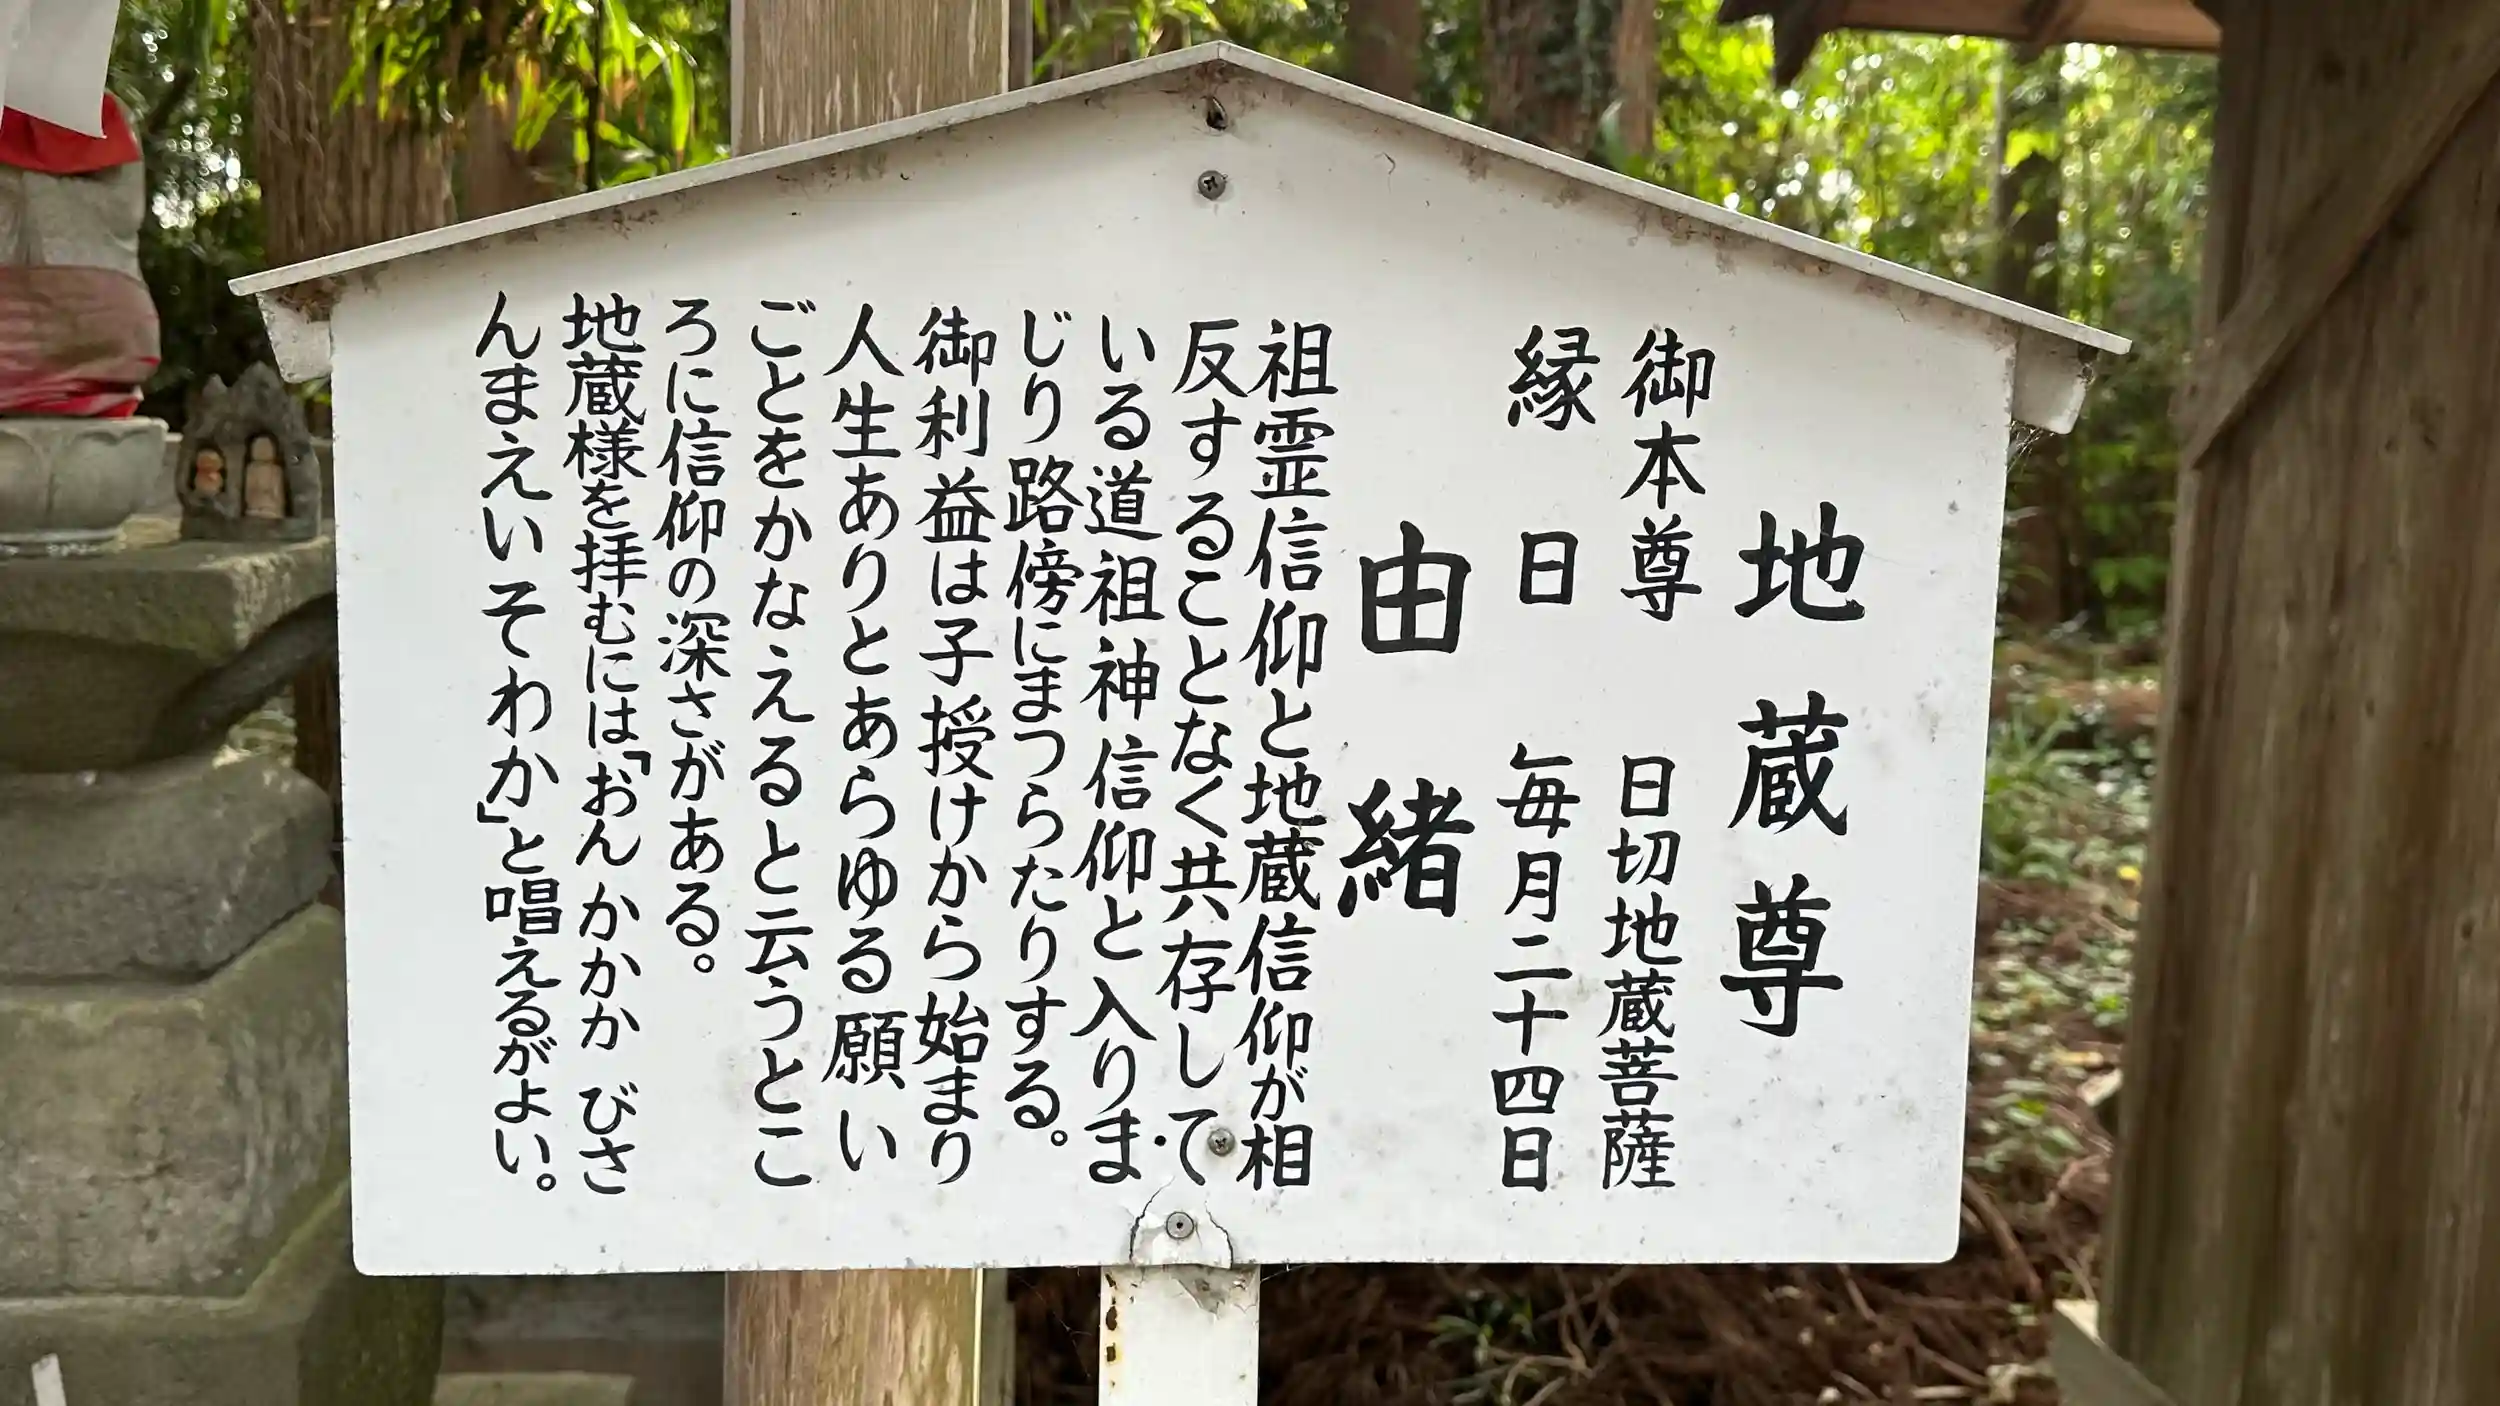 地蔵尊
御本尊 日切地蔵菩薩
縁日 毎月二十四日
由緒
祖霊信仰と地蔵信仰が相
反することなく共存して
いる道祖神信仰と入りま
じり路傍にまつらたりする。
御利益は子授けから始まり
人生ありとあらゆる願い
ごとをかなえると云うとこ
ろに信仰の深さがある。
地蔵様を拝むには「おんかかか びさ
んまえいそわか」と唱えるがよい。